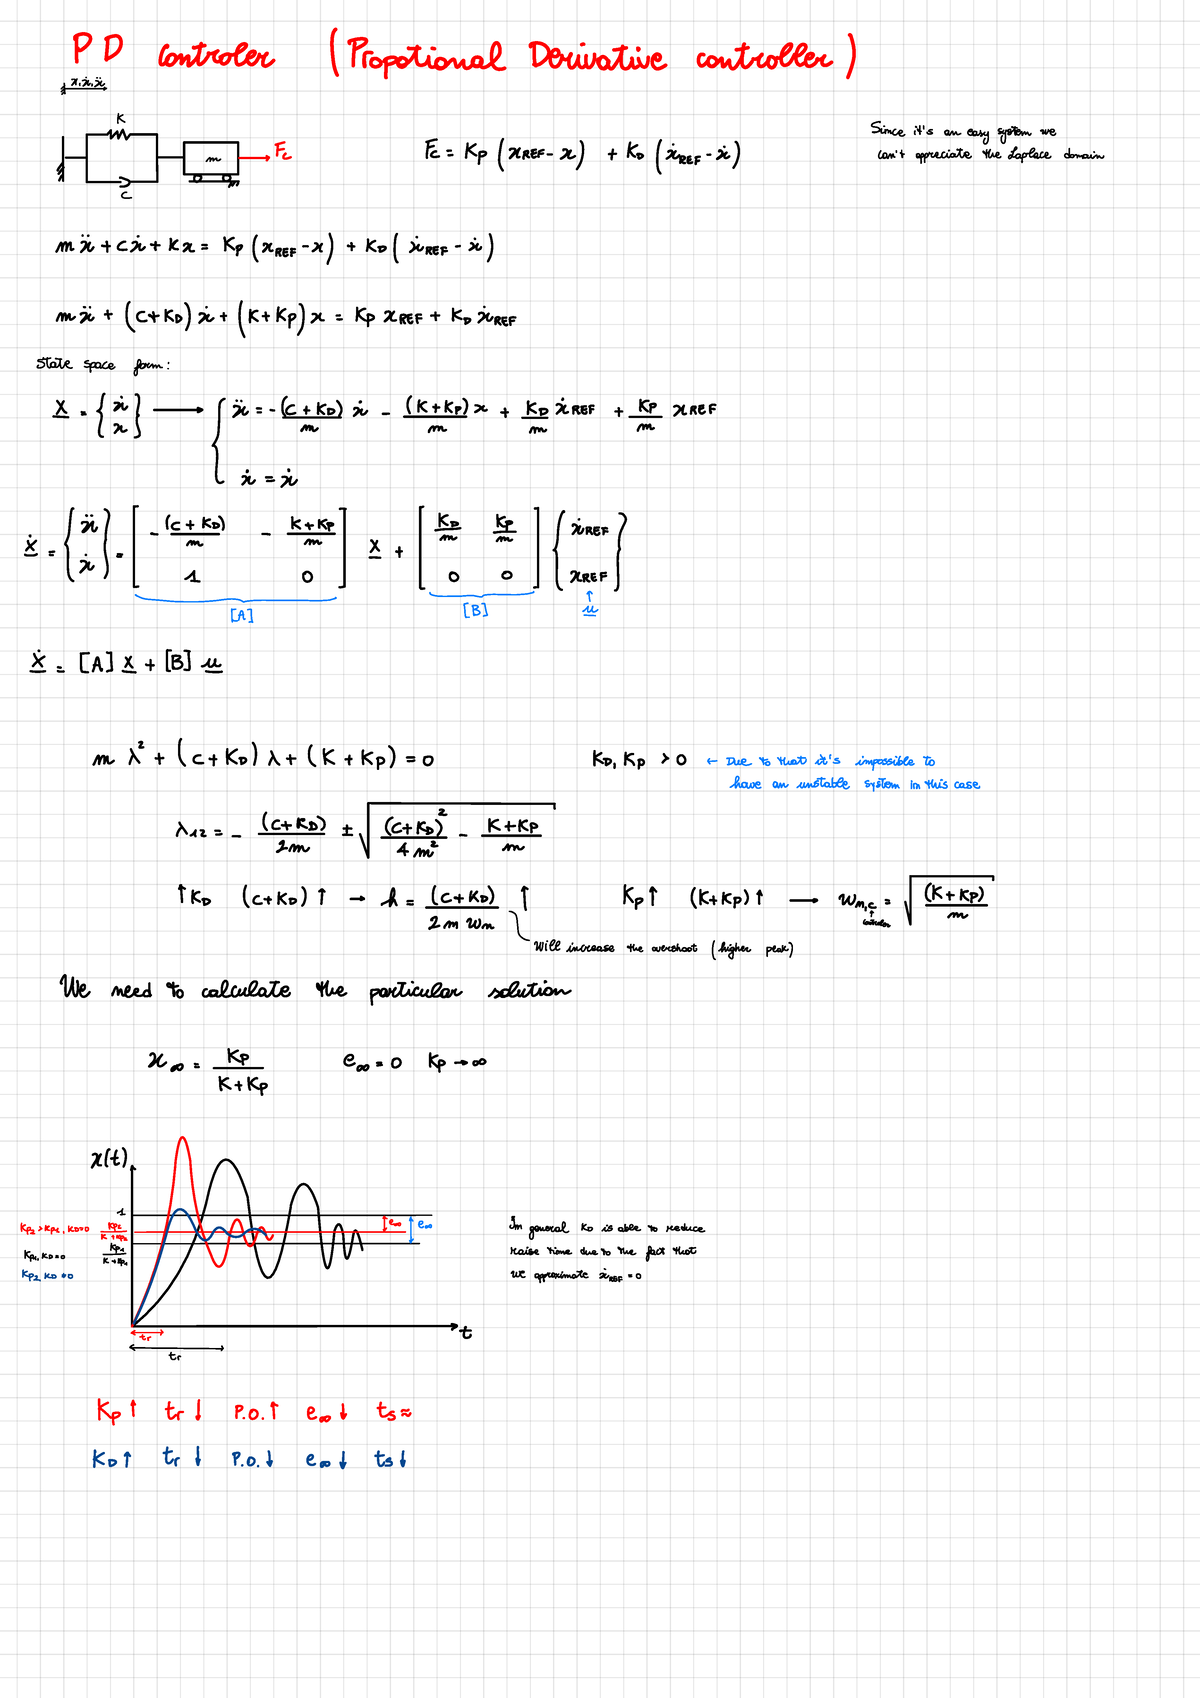 PD controler (Propotional Derivative controller)
x, ẋ, ẍ
K
m
Fc
m
C
Fc = Kp (xREF - x) + KD (ẋREF - ẋ)
Since it's an easy system we
can't appreciate the Laplace domain
mẍ + cẋ + Kx = Kp (xREF - x) + KD (ẋREF - ẋ)
mẍ + (C + KD) ẋ + (K + Kp) x = Kp xREF + KD ẋREF
State space form:
X = {ẋ x} → { ẍ = - (C + KD)/m ẋ - (K + Kp)/m x + KD/m ẋREF + Kp/m xREF
ẋ = ẋ
Ẋ = {ẍ ẋ} = [ - (C + KD)/m - K + Kp/m ; 1 0 ] X + [ KD/m Kp/m ; 0 0 ] {ẋREF xREF}
[A] [B] ↑ u
Ẋ = [A] X + [B] u
m λ² + (C + KD) λ + (K + Kp) = 0
KD, Kp > 0 ← Due to that it's impossible to
have an unstable system in this case
λ12 = - (C + KD)/2m ± √( (C + KD)²/4m² - K + Kp/m )
↑KD (C + KD) ↑ → h = (C + KD)/2m wn ↑
Kp↑ (K + Kp) ↑ → wn,c = √( (K + Kp)/m )
↑
controler
will increase the overshoot (higher peak)
We need to calculate the particular solution
x∞ = Kp/K + Kp e∞ = 0 Kp → ∞
x(t)
1
Kp2 > Kp1, KD=0 Kp2/K + Kp2
e∞ e∞
Kp1, KD=0 Kp1/K + Kp1
Kp2 KD ≠0
t
tr
tr
In general KD is able to reduce
raise time due to the fact that
we approximate ẋREF = 0
Kp ↑ tr ↓ P.O. ↑ e∞ ↓ ts ≈
KD ↑ tr ↓ P.O. ↓ e∞ ↓ ts ↓